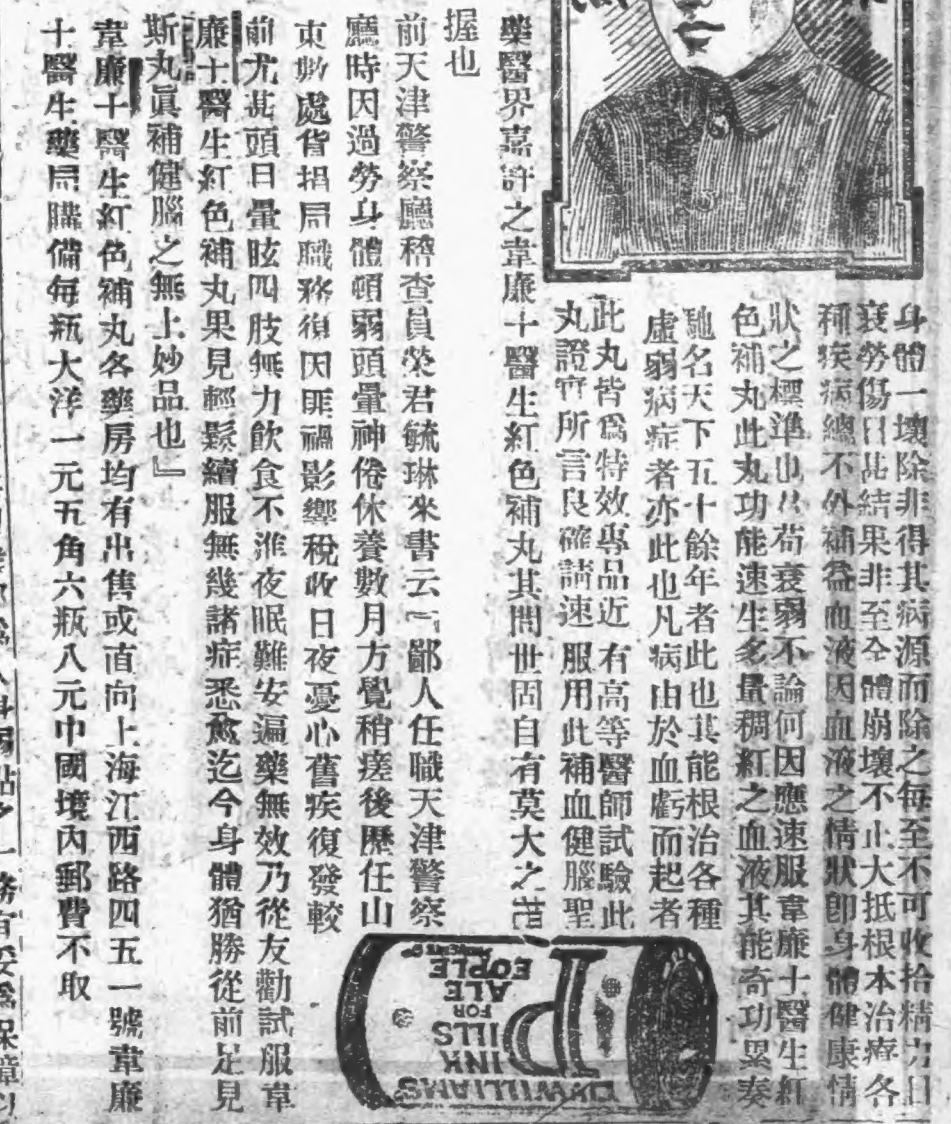 身體一壞除非得其病源而除之每至不可收拾精力日
衰勞傷日甚結果非至全體崩壞不止大抵根本治療各
種疾病總不外補益血液因血液之情狀卽身體健康情
狀之標準也苟衰弱不論何因應速服韋廉士醫生紅
色補丸此丸功能速生多量稠紅之血液其能奇功累奏
馳名天下五十餘年者此也其能根治各種
虛弱病症者亦此也凡病由於血虧而起者
此丸皆爲特效專品近有高等醫師試驗此
丸證實所言良確請速服用此補血健腦聖
藥醫界嘉許之韋廉士醫生紅色補丸其問世固自有莫大之
握也
前天津警察廳稽查員榮君毓琳來書云『鄙人任職天津警察
廳時因過勞身體頓弱頭暈神倦休養數月方覺稍瘥後歷任山
東數處貨捐局職務復因匪禍影響稅收日夜憂心舊疾復發較
前尤甚頭目暈眩四肢無力飲食不准夜眠難安遍藥無效乃從友勸試服韋
廉士醫生紅色補丸果見輕鬆續服無幾諸症悉愈迄今身體猶勝從前足見
斯丸眞補健腦之無上妙品也』
韋廉士醫生紅色補丸各藥房均有出售或直向上海江西路四五一號韋廉
士醫生藥局購備每瓶大洋一元五角六瓶八元中國境內郵費不取
DR WILLIAMS
PINK
PILLS
FOR
PALE
PEOPLE